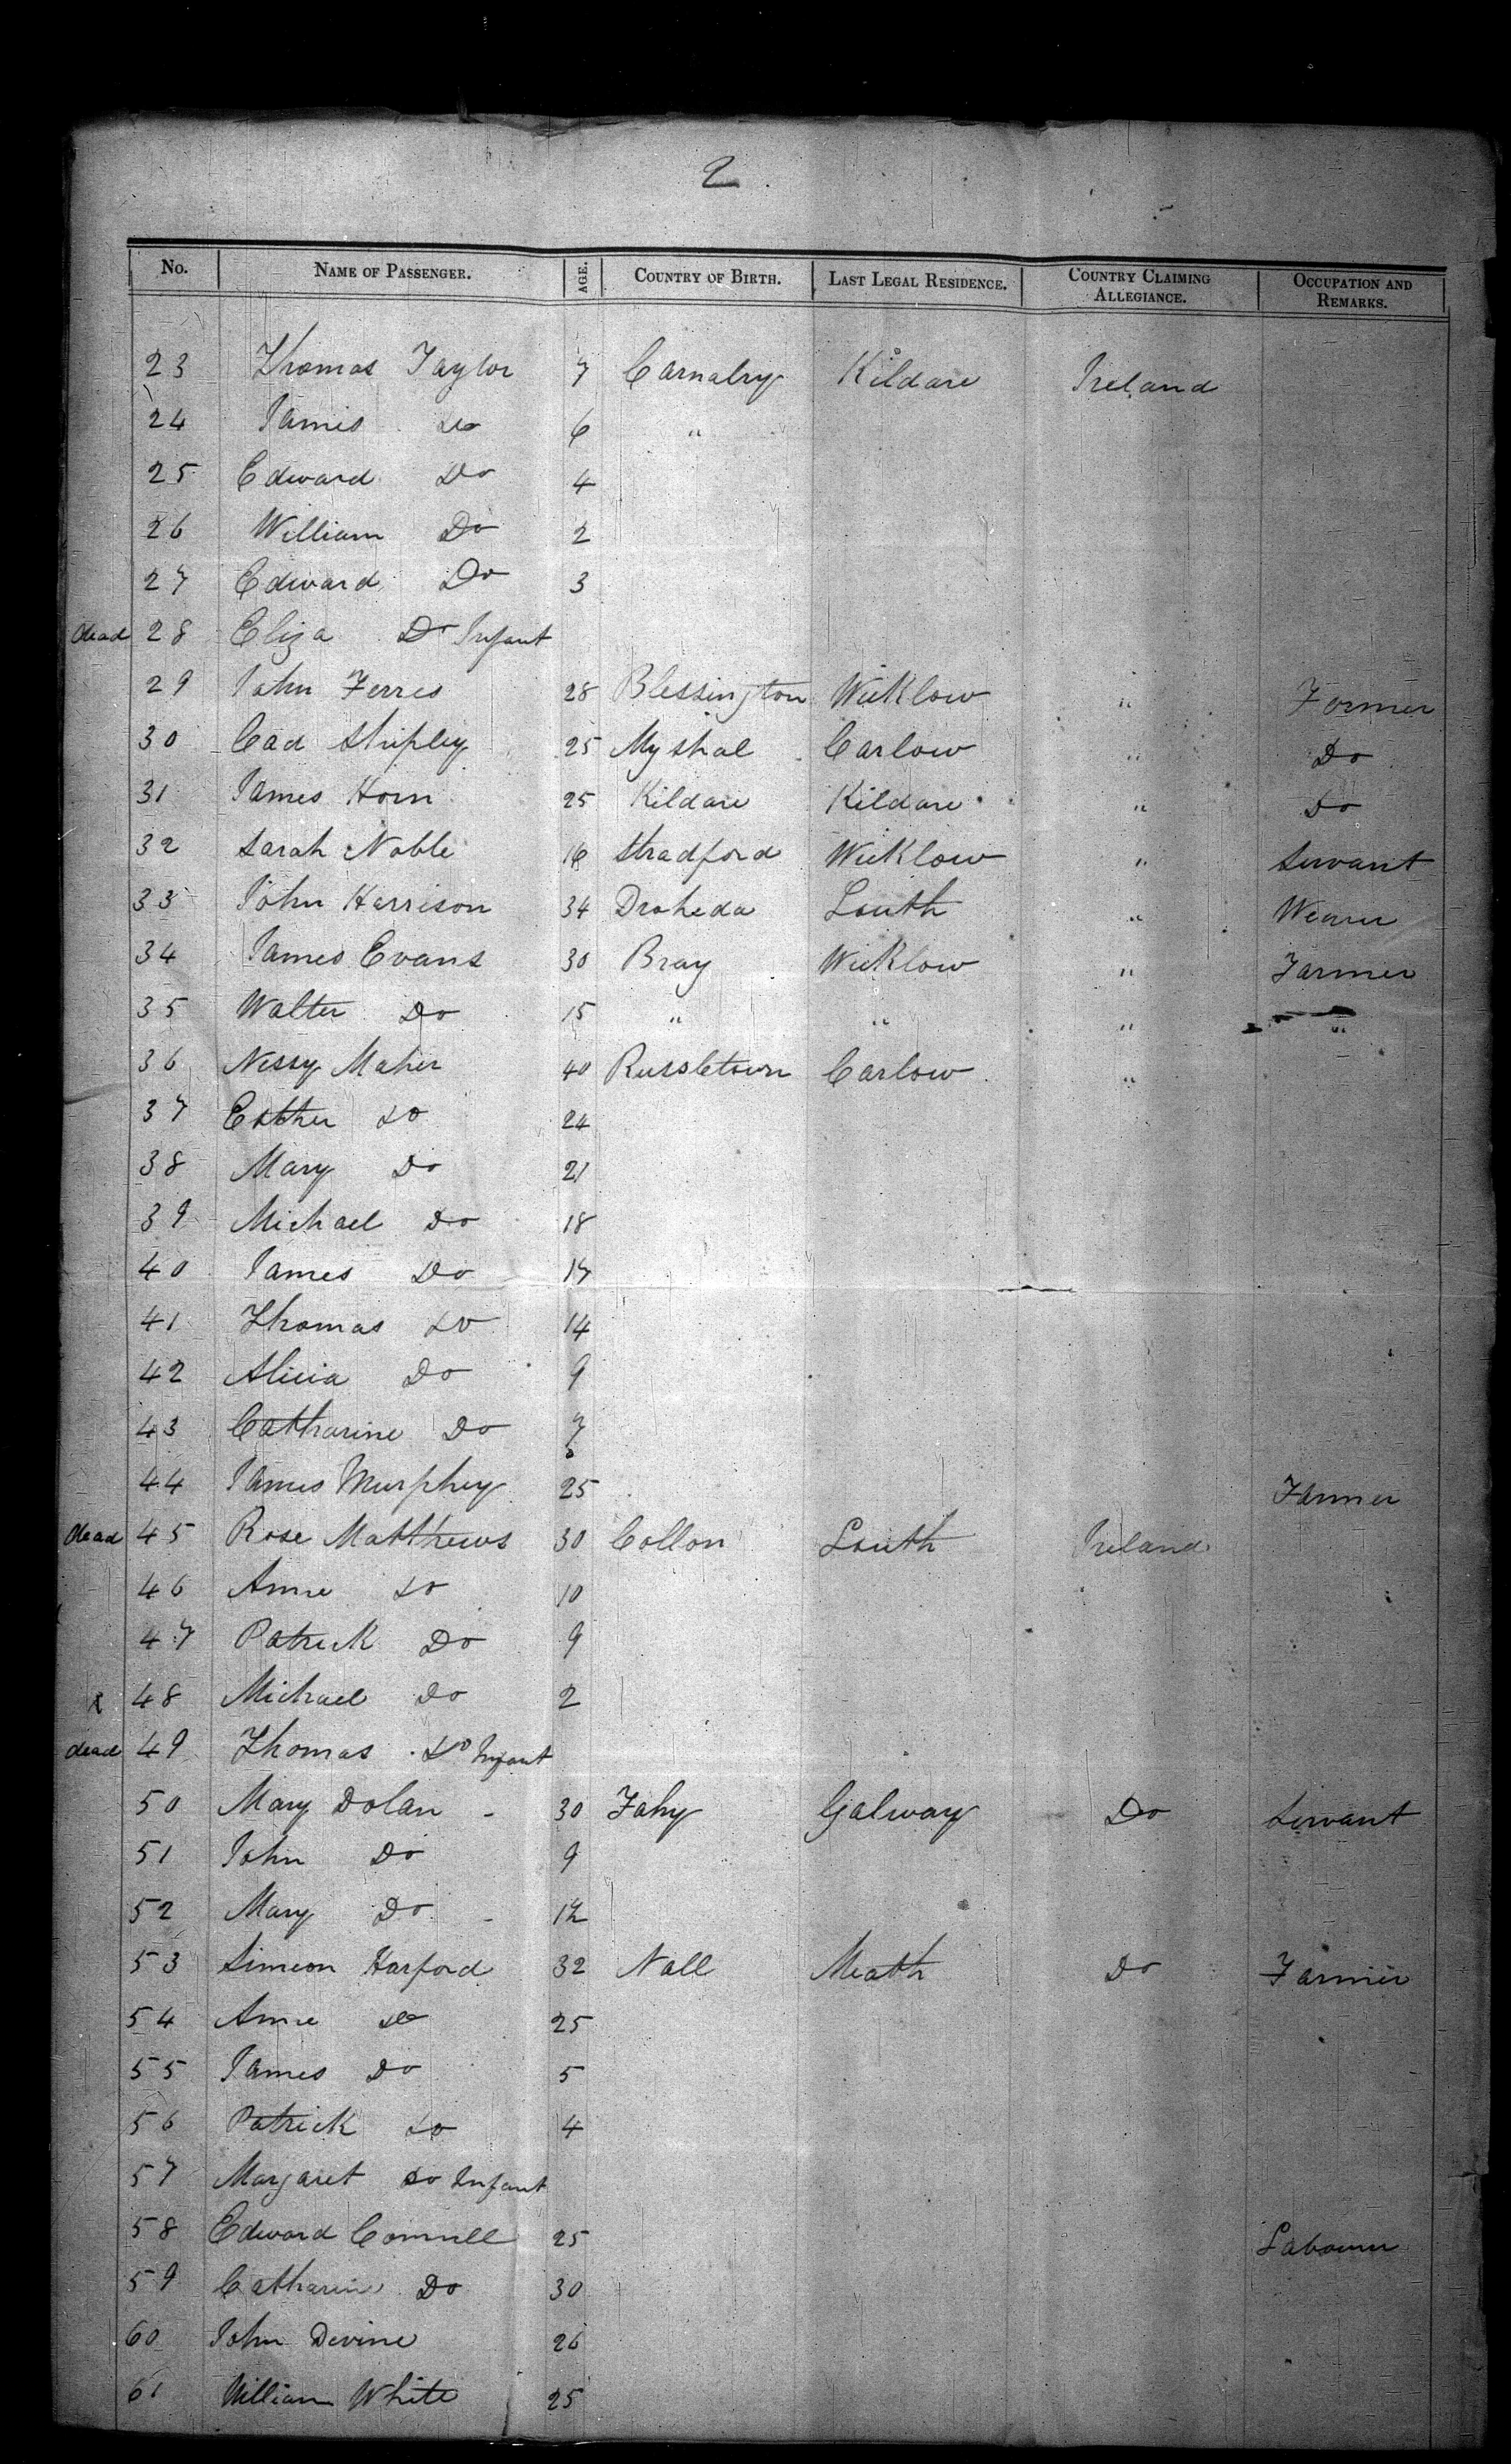 2
No. NAME OF PASSENGER. AGE. COUNTRY OF BIRTH. LAST LEGAL RESIDENCE. COUNTRY CLAIMING ALLEGIANCE. OCCUPATION AND REMARKS.
23 Thomas Taylor 7 Carnalry Kildare Ireland
24 James Do 6 "
25 Edward Do 4
26 William Do 2
27 Edward Do 3
dead 28 Eliza Do Infant
29 John Ferres 28 Blessington Wicklow " Farmer
30 Cad Shipley 25 Myshal Carlow " Do
31 James Horn 25 Kildare Kildare " Do
32 Sarah Noble 16 Stradford Wicklow " Servant
33 John Harrison 34 Droheda Louth " Weaver
34 James Evans 30 Bray Wicklow " Farmer
35 Walter Do 15 " " " "
36 Nessy Maher 40 Russletown Carlow "
37 Esther Do 24
38 Mary Do 21
39 Michael Do 18
40 James Do 17
41 Thomas Do 14
42 Alicia Do 9
43 Catharine Do 7
44 James Murphey 25 Farmer
dead 45 Rose Matthews 30 Collon Louth Ireland
46 Anne Do 10
47 Patrick Do 9
x 48 Michael Do 2
dead 49 Thomas Do Infant
50 Mary Dolan 30 Fahy Galway Do Servant
51 John Do 9
52 Mary Do 12
53 Simeon Harford 32 Nall Meath Do Farmer
54 Anne Do 25
55 James Do 5
56 Patrick Do 4
57 Margaret Do Infant
58 Edward Connell 25 Labourer
59 Catharine Do 30
60 John Devine 26
61 William White 25